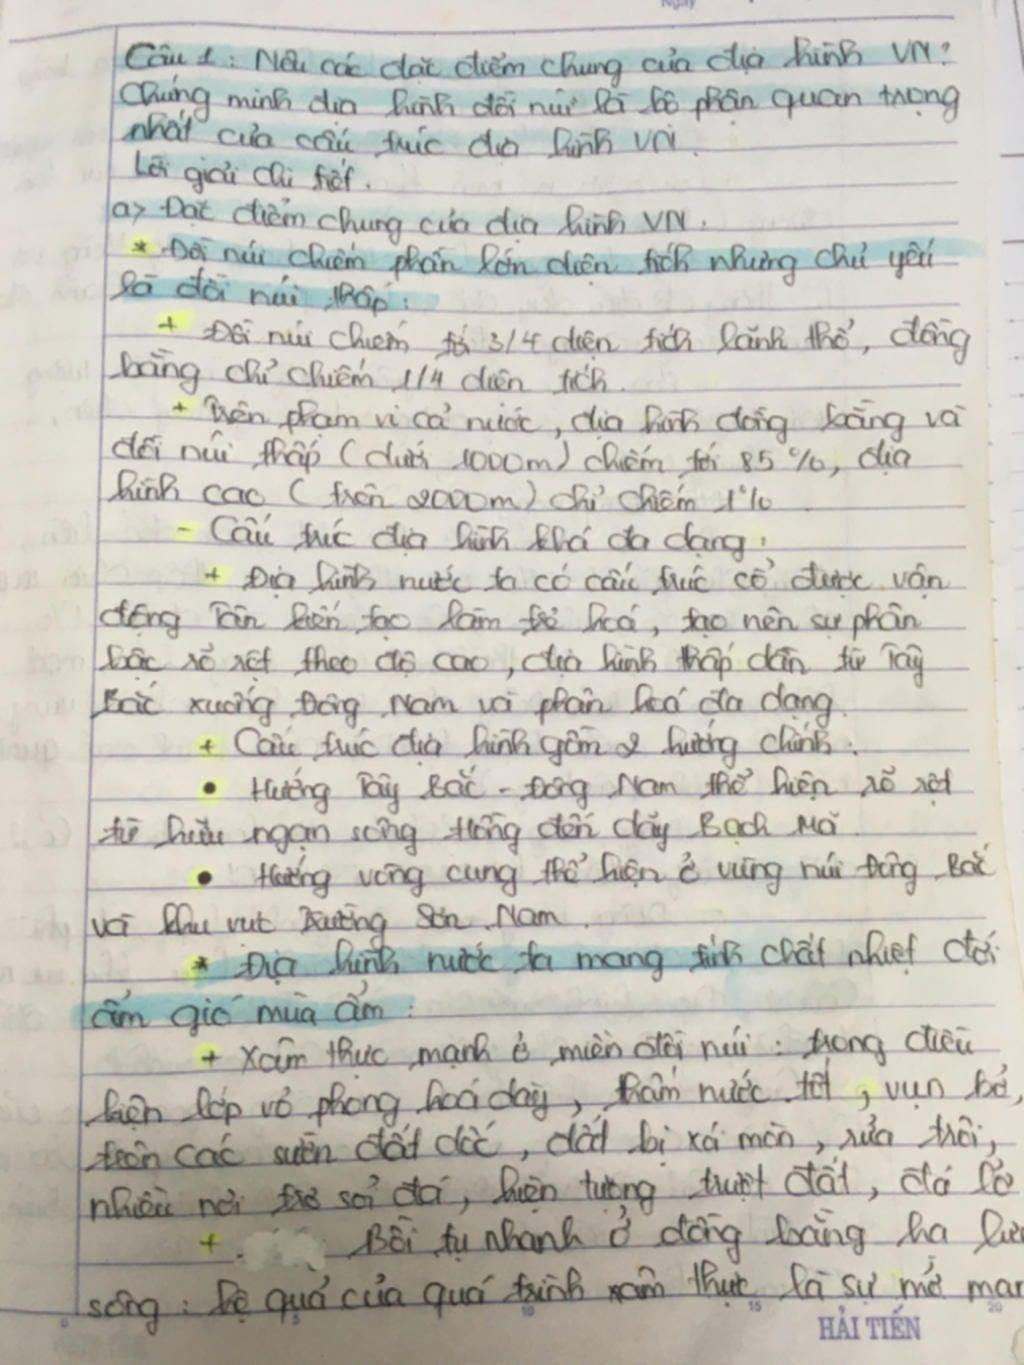 Ngày
Câu 1: Nêu các đặc điểm chung của địa hình VN?
Chứng minh địa hình đồi núi là bộ phận quan trọng
nhất của cấu trúc địa hình VN.
Lời giải chi tiết.
a> Đặc điểm chung của địa hình VN.
* Đồi núi chiếm phần lớn diện tích nhưng chủ yếu
là đồi núi thấp:
+ Đồi núi chiếm tới 3/4 diện tích lãnh thổ, đồng
bằng chỉ chiếm 1/4 diện tích.
+ Trên phạm vi cả nước, địa hình đồng bằng và
đồi núi thấp (dưới 1000m) chiếm tới 85%, địa
hình cao (trên 2000m) chỉ chiếm 1%
- Cấu trúc địa hình khá đa dạng:
+ Địa hình nước ta có cấu trúc cổ được vận
động Tân kiến tạo làm trẻ hoá, tạo nên sự phân
bậc rõ rệt theo độ cao, địa hình thấp dần từ Tây
Bắc xuống Đông Nam và phân hoá đa dạng.
+ Cấu trúc địa hình gồm 2 hướng chính:
• Hướng Tây Bắc - Đông Nam thể hiện rõ rệt
từ hữu ngạn sông Hồng đến dãy Bạch Mã.
• Hướng vòng cung thể hiện ở vùng núi Đông Bắc
và khu vực Trường Sơn Nam.
* Địa hình nước ta mang tính chất nhiệt đới
ẩm gió mùa ẩm:
+ Xâm thực mạnh ở miền đồi núi: trong điều
kiện lớp vỏ phong hoá dày, thấm nước tốt, vụn bở,
trên các sườn đất dốc, đất bị xói mòn, rửa trôi,
nhiều nơi trơ sỏi đá, hiện tượng trượt đất, đá lở
+ Bồi tụ nhanh ở đồng bằng hạ lưu
sông: hệ quả của quá trình xâm thực là sự mở man
0 5 10 15 20
HẢI TIẾN